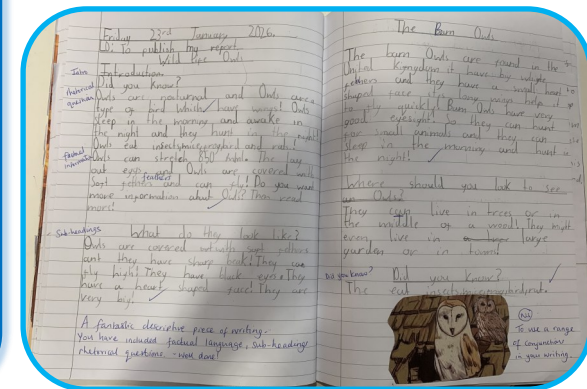 Friday 23rd January 2026.
LO: To publish my report
Wild life Owls
Introduction
Did you know?
Owls are nocturnal and Owls are a
type of bird which have wings! Owls
sleep in the morning and awake in
the night and they hunt in the night
Owls eat
Owls can stretch 850
out eggs and Owls are covered with
Soft fethers and can fly! Do you want
more information about Owls? Then read
more!
What do they look like?
Owls are covered with soft fethers
and they have sharp beak! They
fly high! They have black eyes They
have a heart shaped face! They are
very big!
John
rhetorical
question
factual
information
feathers
Sub-headings
A fantastic descriptive piece of writing.
You have included factual language, sub-headings
rhetorical questions. - Well done!
The Barn Owls
The barn Owls are found in the
it have
fethers and they have a small heart
shaped face its long wings help it
quickly! Barn Owls have very
good eyesight So they can hunt
for small animals and they can
sleep in the morning and hunt a
the night!
Where should you look to see
an Owl
They can live in trees or in
the middle of a wood! They might
even live in large
garden or in
Did you know?
Did you know?
The eat
NS
To use a range
of conjunctions
in your writing.